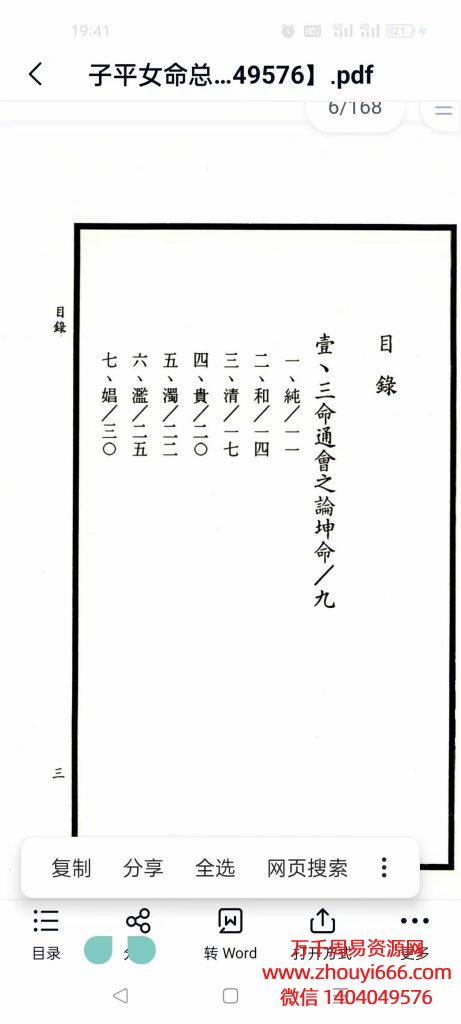 19:41
HD
4G
4G
21
子平女命总...49576】.pdf
6/168
目錄
目錄
壹、三命通會之論坤命／九
一、純／一一
二、和／一四
三、清／一七
四、貴／二〇
五、濁／二二
六、濫／二五
七、娼／三〇
三
复制
分享
全选
网页搜索
目录
转 Word
打开方式
更多
万千周易资源网
www.zhouyi666.com
微信 1404049576